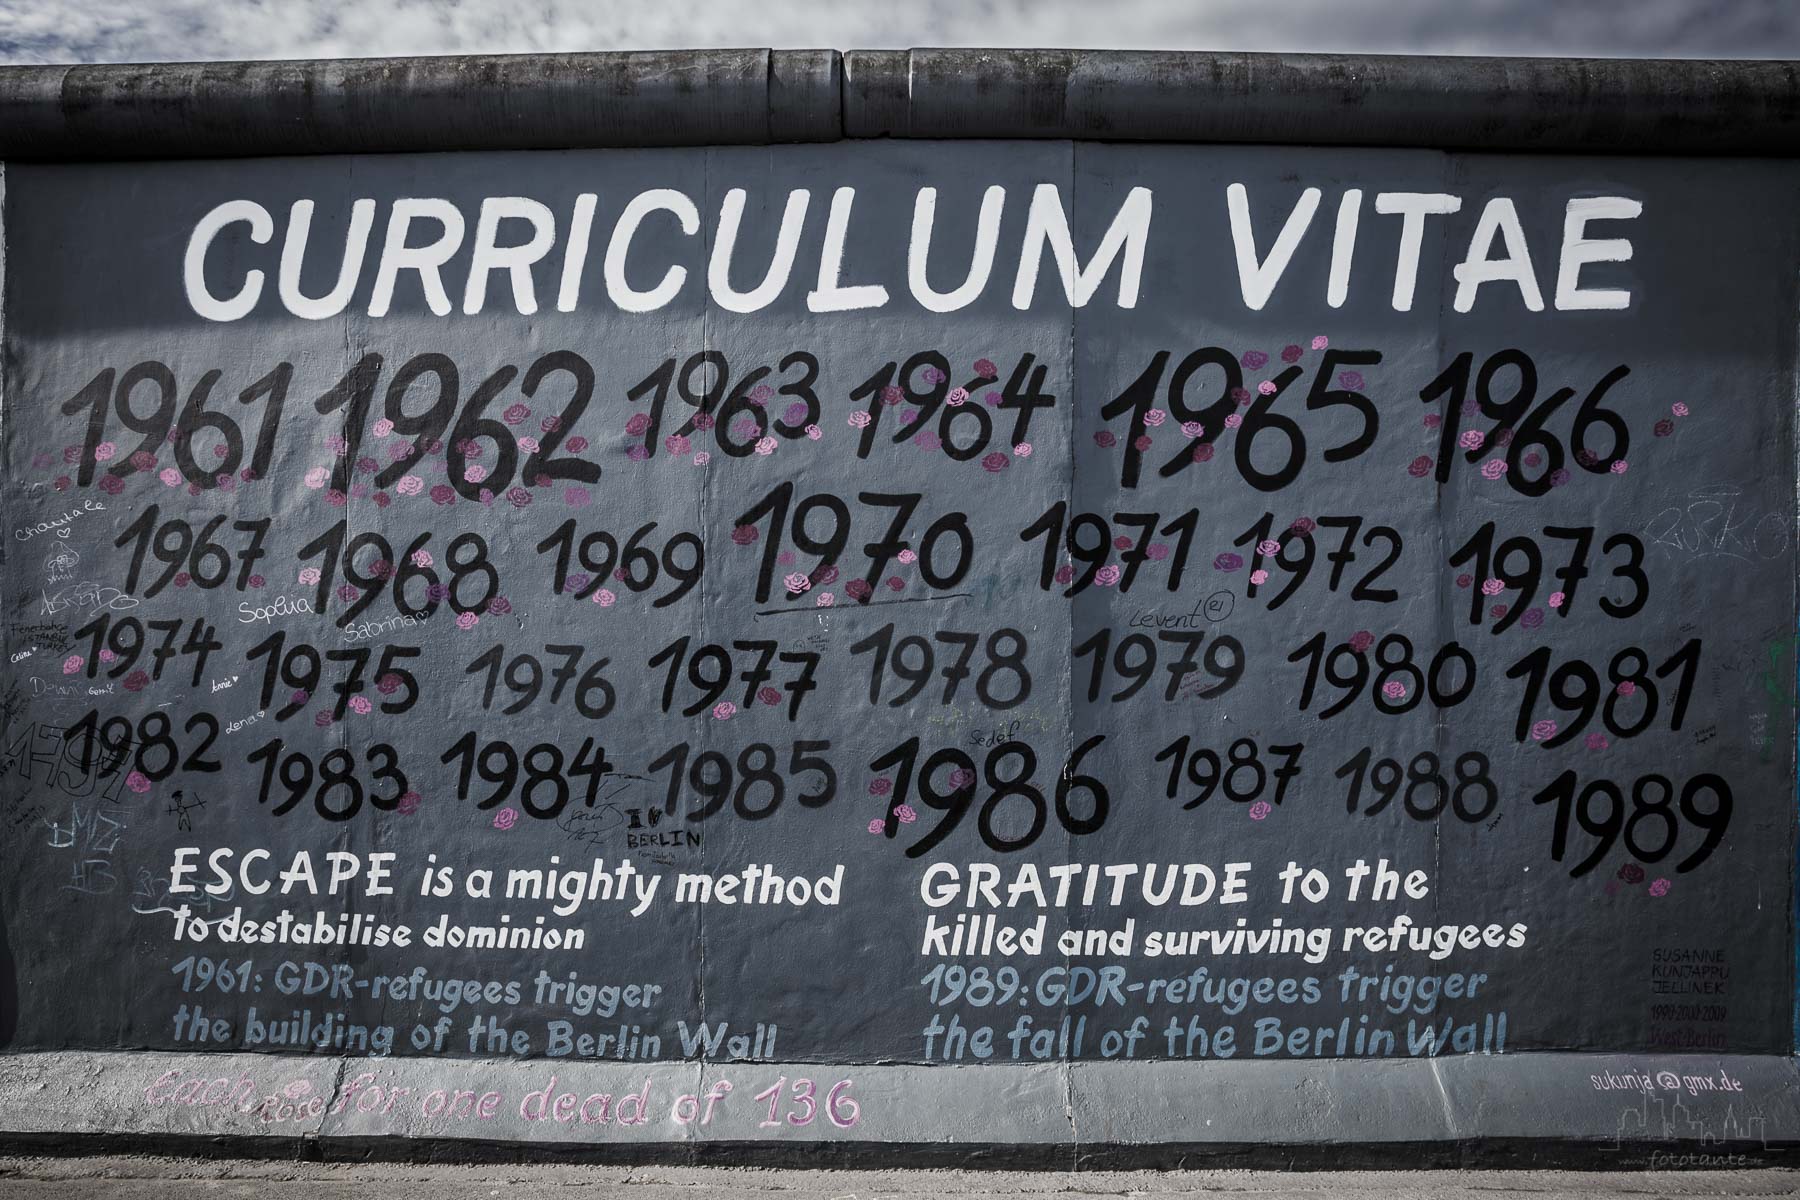 CURRICULUM VITAE
1961 1962 1963 1964 1965 1966
1967 1968 1969 1970 1971 1972 1973
1974 1975 1976 1977 1978 1979 1980 1981
1982 1983 1984 1985 1986 1987 1988 1989
Chantale
Sophia
Sabrina
Levent 21
Fenerbahçe
ISTANBUL
TURKEY
Celine
Annie
Lena
Sedef
I
BERLIN
ESCAPE is a mighty method
to destabilise dominion
1961: GDR-refugees trigger
the building of the Berlin Wall
GRATITUDE to the
killed and surviving refugees
1989: GDR-refugees trigger
the fall of the Berlin Wall
SUSANNE
KUNJAPPU
JELLINEK
1990-2000-2009
West-Berlin
each Rose for one dead of 136
sukunja@gmx.de
www.fototante.de